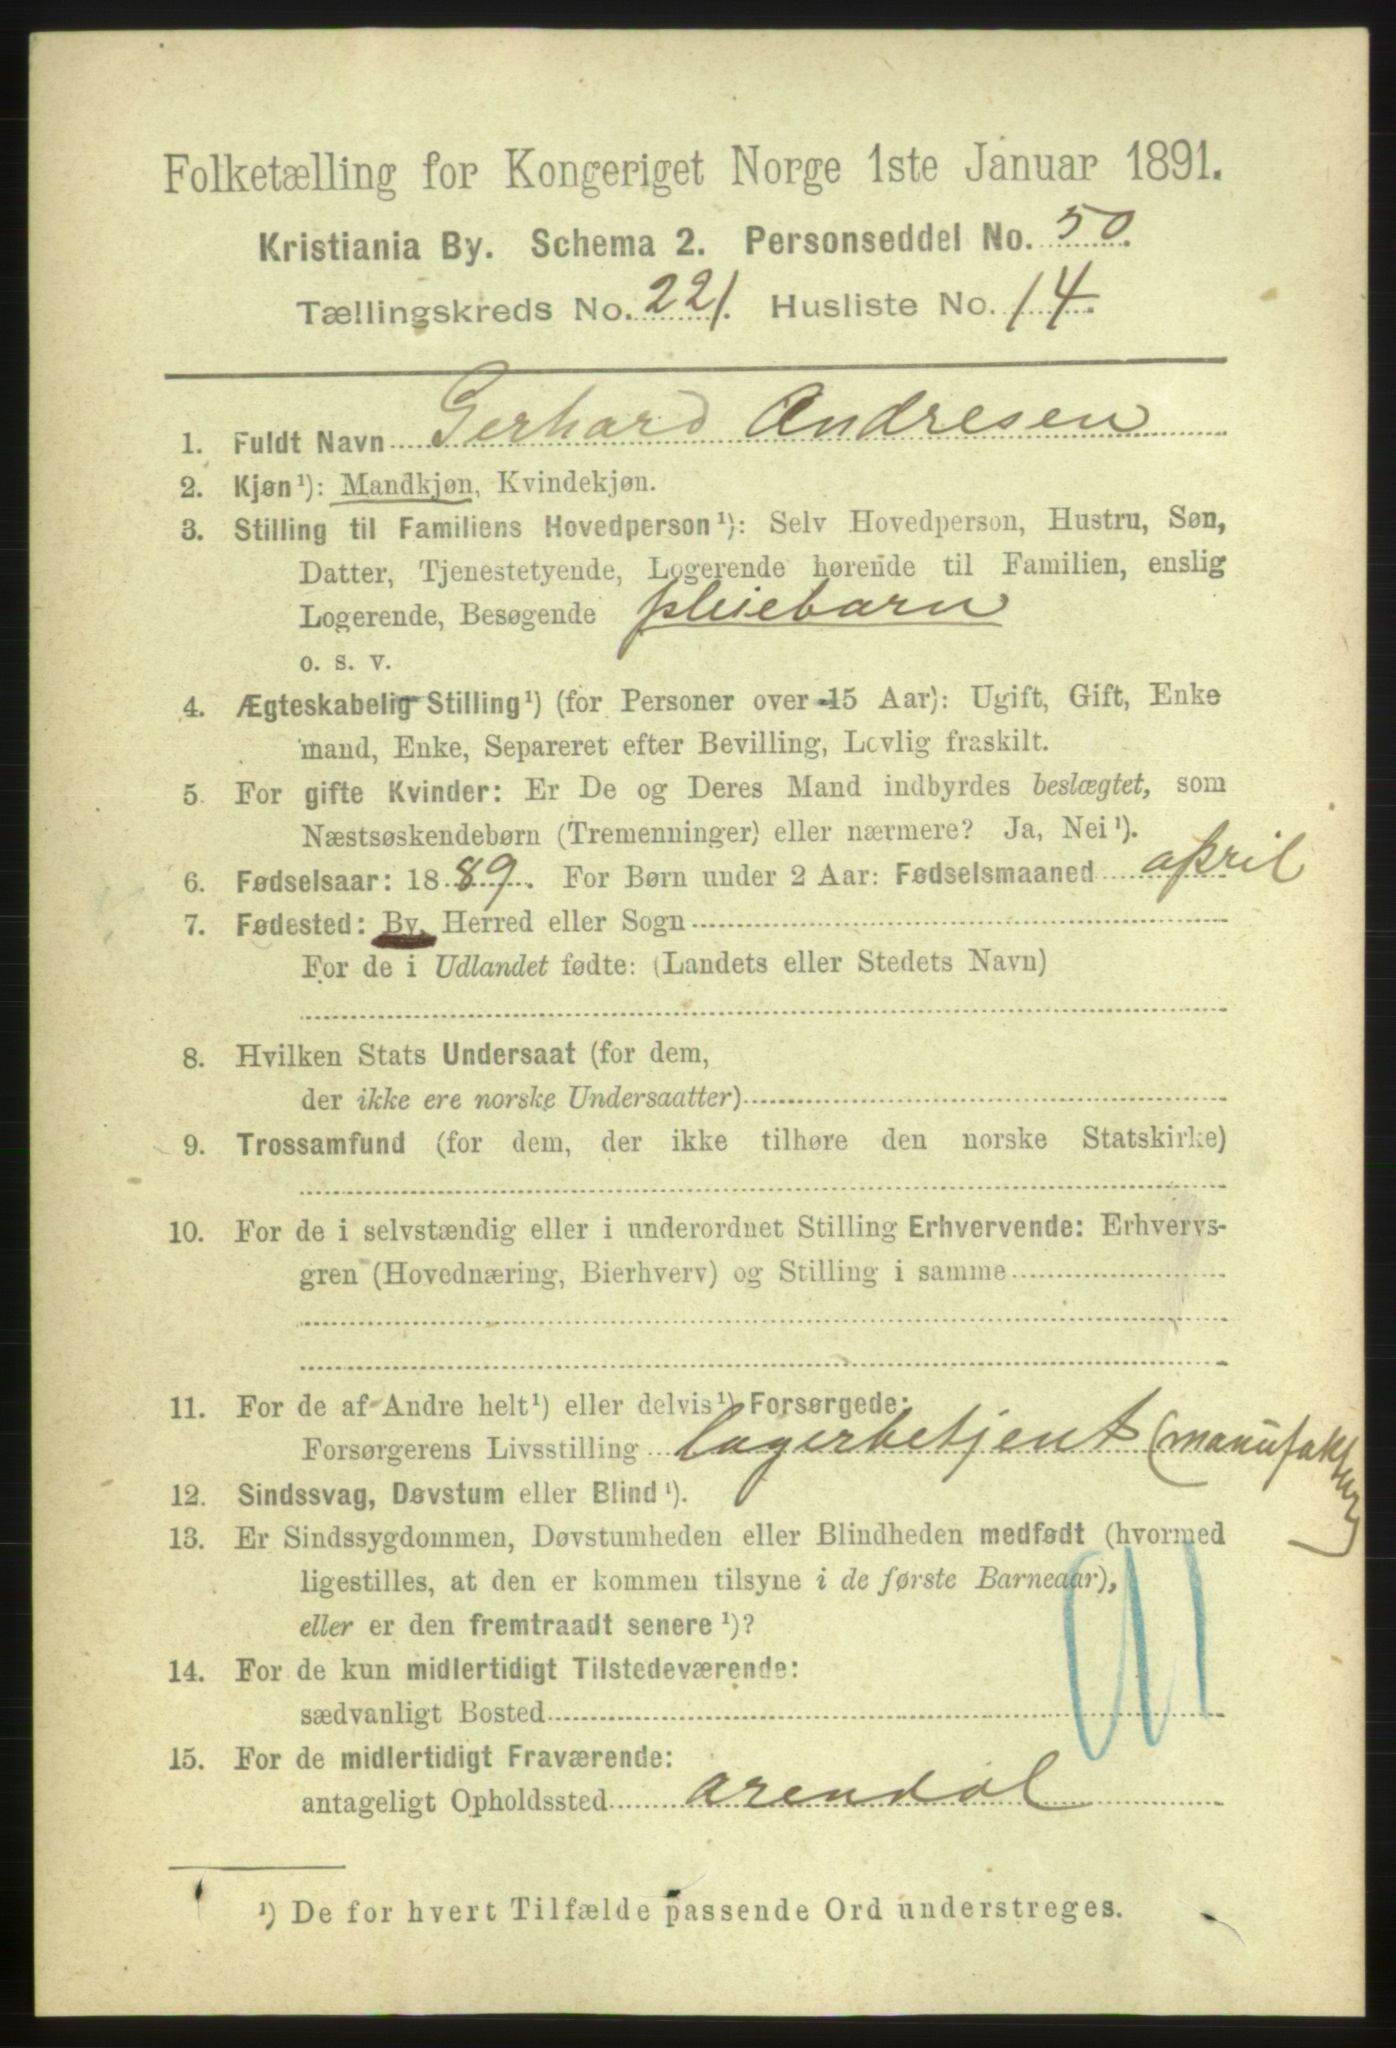 Folketælling for Kongeriget Norge 1ste Januar 1891.
Kristiania By. Schema 2. Personseddel No. 50.
Tællingskreds No. 221. Husliste No. 14.
1. Fuldt Navn Gerhard Andresen
2. Kjøn¹): Mandkjøn, Kvindekjøn.
3. Stilling til Familiens Hovedperson¹): Selv Hovedperson, Hustru, Søn,
Datter, Tjenestetyende, Logerende hørende til Familien, enslig
Logerende, Besøgende pleiebarn
o. s. v.
4. Ægteskabelig Stilling¹) (for Personer over 15 Aar): Ugift, Gift, Enke
mand, Enke, Separeret efter Bevilling, Lovlig fraskilt.
5. For gifte Kvinder: Er De og Deres Mand indbyrdes beslægtet, som
Næstsøskendebørn (Tremenninger) eller nærmere? Ja, Nei¹).
6. Fødselsaar: 1889. For Børn under 2 Aar: Fødselsmaaned april
7. Fødested: By, Herred eller Sogn
For de i Udlandet fødte: (Landets eller Stedets Navn)
8. Hvilken Stats Undersaat (for dem,
der ikke ere norske Undersaatter)
9. Trossamfund (for dem, der ikke tilhøre den norske Statskirke)
10. For de i selvstændig eller i underordnet Stilling Erhvervende: Erhvervs-
gren (Hovednæring, Bierhverv) og Stilling i samme
11. For de af Andre helt¹) eller delvis¹) Forsørgede:
Forsørgerens Livsstilling lagerbetjent (manufaktur)
12. Sindssvag, Døvstum eller Blind¹).
13. Er Sindssygdommen, Døvstumheden eller Blindheden medfødt (hvormed
ligestilles, at den er kommen tilsyne i de første Barneaar),
eller er den fremtraadt senere¹)?
14. For de kun midlertidigt Tilstedeværende:
sædvanligt Bosted
15. For de midlertidigt Fraværende:
antageligt Opholdssted arendal
¹) De for hvert Tilfælde passende Ord understreges.